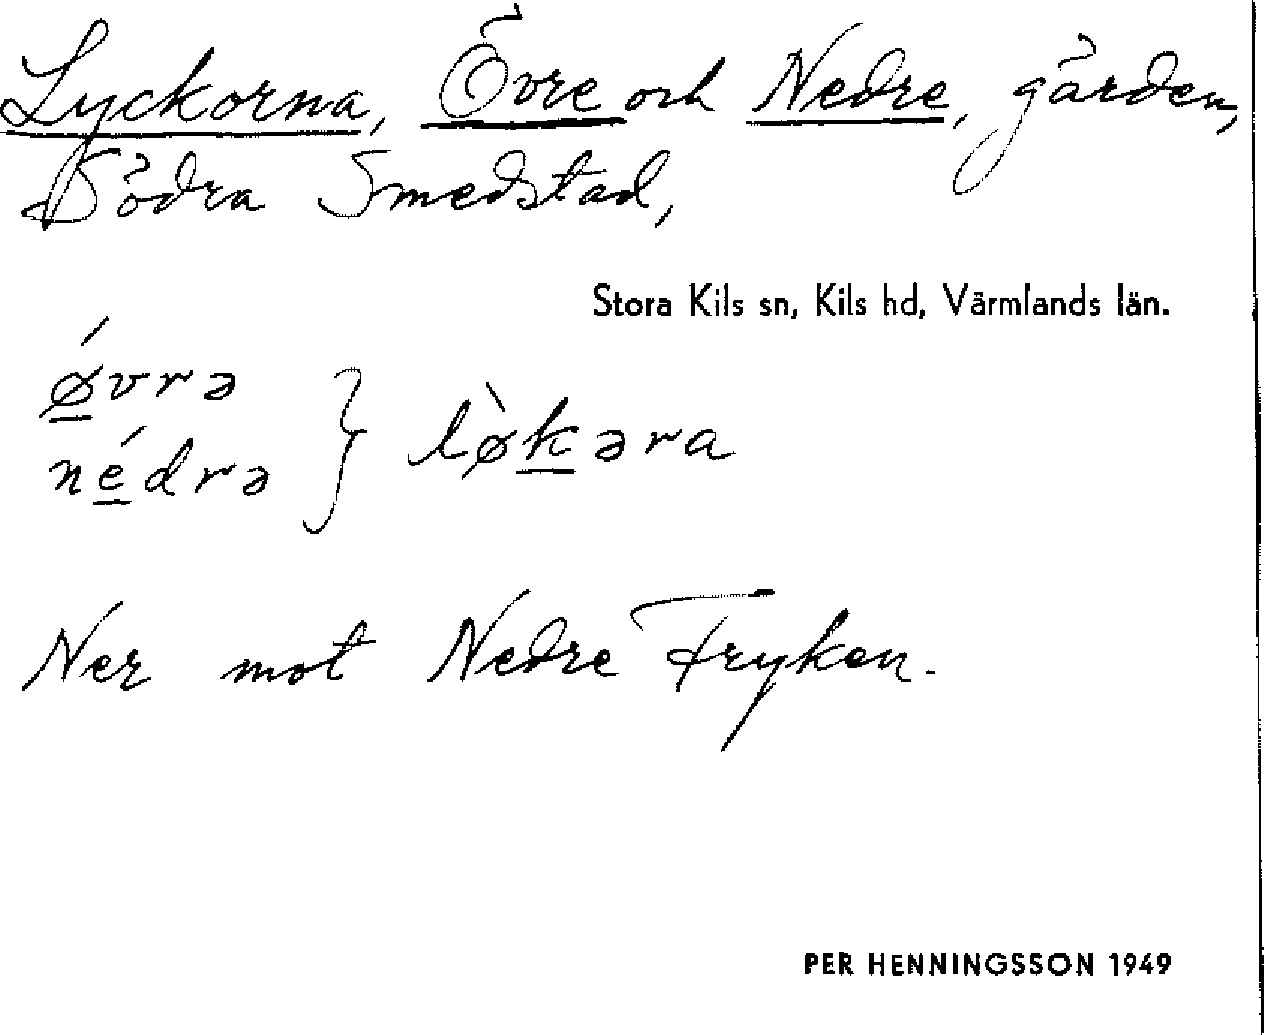 Lyckorna, Övre och Nedre, gärden,
Södra Smedstad,
Stora Kils sn, Kils hd, Värmlands län.
ǿvrə
nédrə } lø̀kəra
Ner mot Nedre Fryken.
PER HENNINGSSON 1949